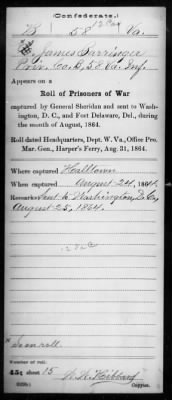 (Confederate.)
12 Cav
B 58 Va.
James Barringer
Priv, Co. B, 58 Va. Inf.
Appears on a
Roll of Prisoners of War
captured by General Sheridan and sent to Washington, D. C., and Fort Delaware, Del., during
the month of August, 1864.
Roll dated Headquarters, Dept. W. Va., Office Pro.
Mar. Gen., Harper's Ferry, Aug. 31, 1864.
Where captured Halltown
When captured August 24, 1864.
Remarks: Sent to Washington D.C.
August 25, 1864.
Number of roll:
451 sheet 15
Copyist.